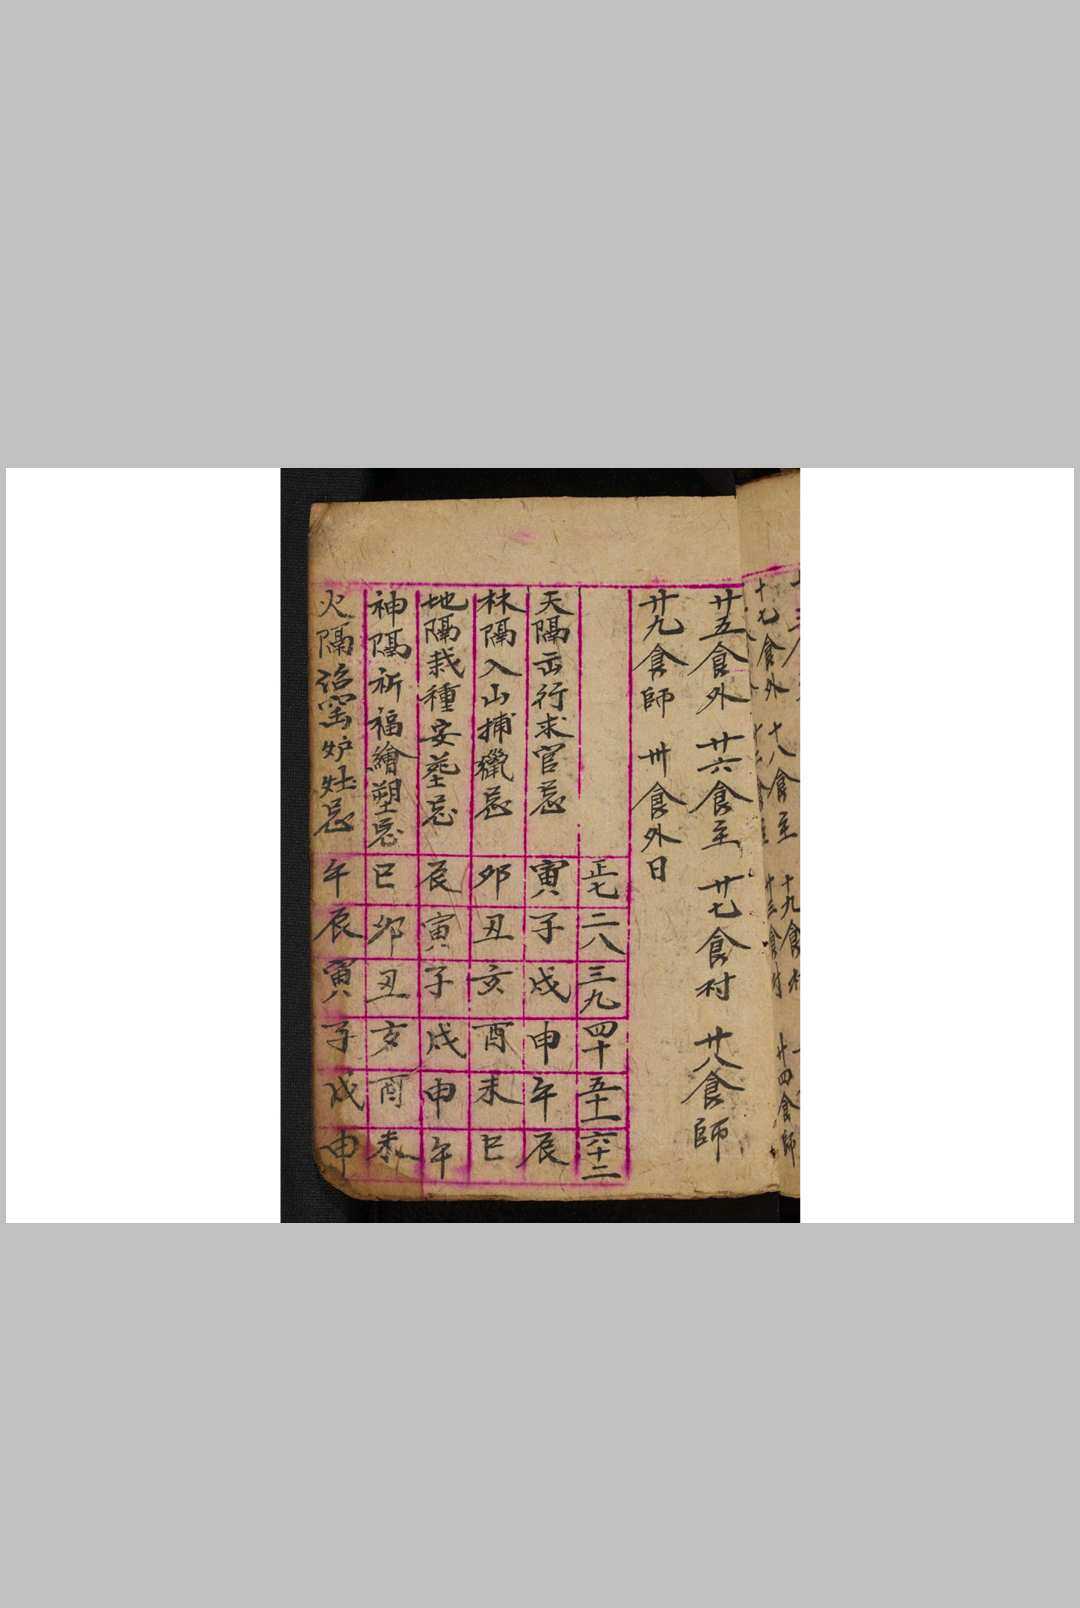 十七食外 十八食主 十九食村
廿三食村 廿四食師
廿五食外 廿六食主 廿七食村 廿八食師
廿九食師 卅食外日
正七 二八 三九 四十 五十一 六十二
天隔出行求官忌 寅 子 戌 申 午 辰
林隔入山捕獵忌 卯 丑 亥 酉 未 巳
地隔栽種安塟忌 辰 寅 子 戌 申 午
神隔祈福繪塑忌 巳 卯 丑 亥 酉 未
火隔治窑炉灶忌 午 辰 寅 子 戌 申